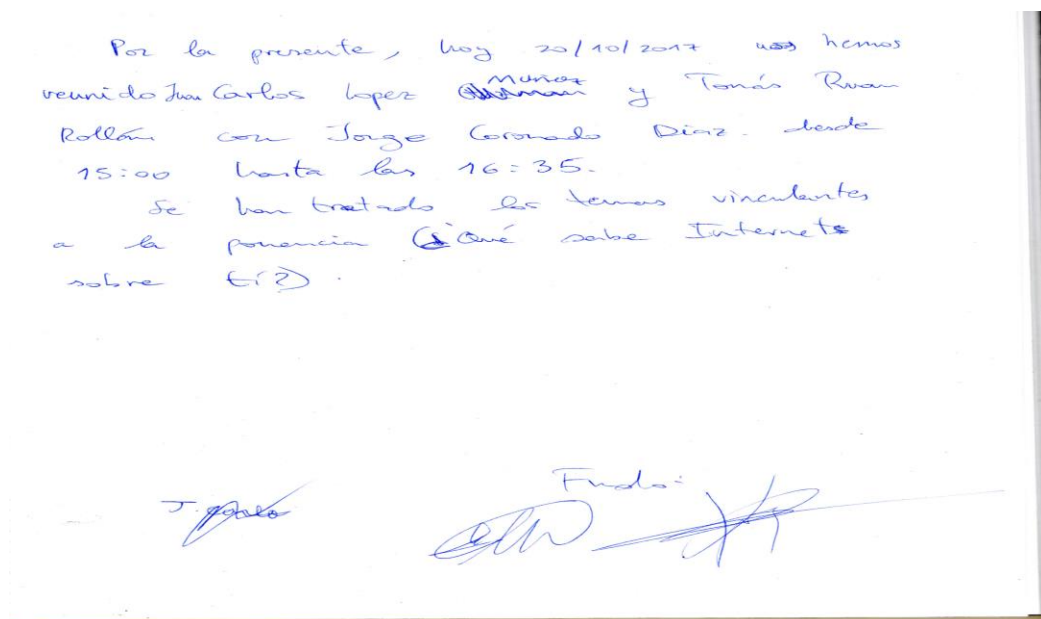 Por la presente, hoy 20/10/2017 nos hemos
reunido Juan Carlos Lopez Muñoz y Tomás Ruan
Rollán con Jorge Coronado Díaz. desde
15:00 hasta las 16:35.
Se han tratado los temas vinculantes
a la ponencia (¿Qué sabe Internet
sobre tí?).
Fmdo: